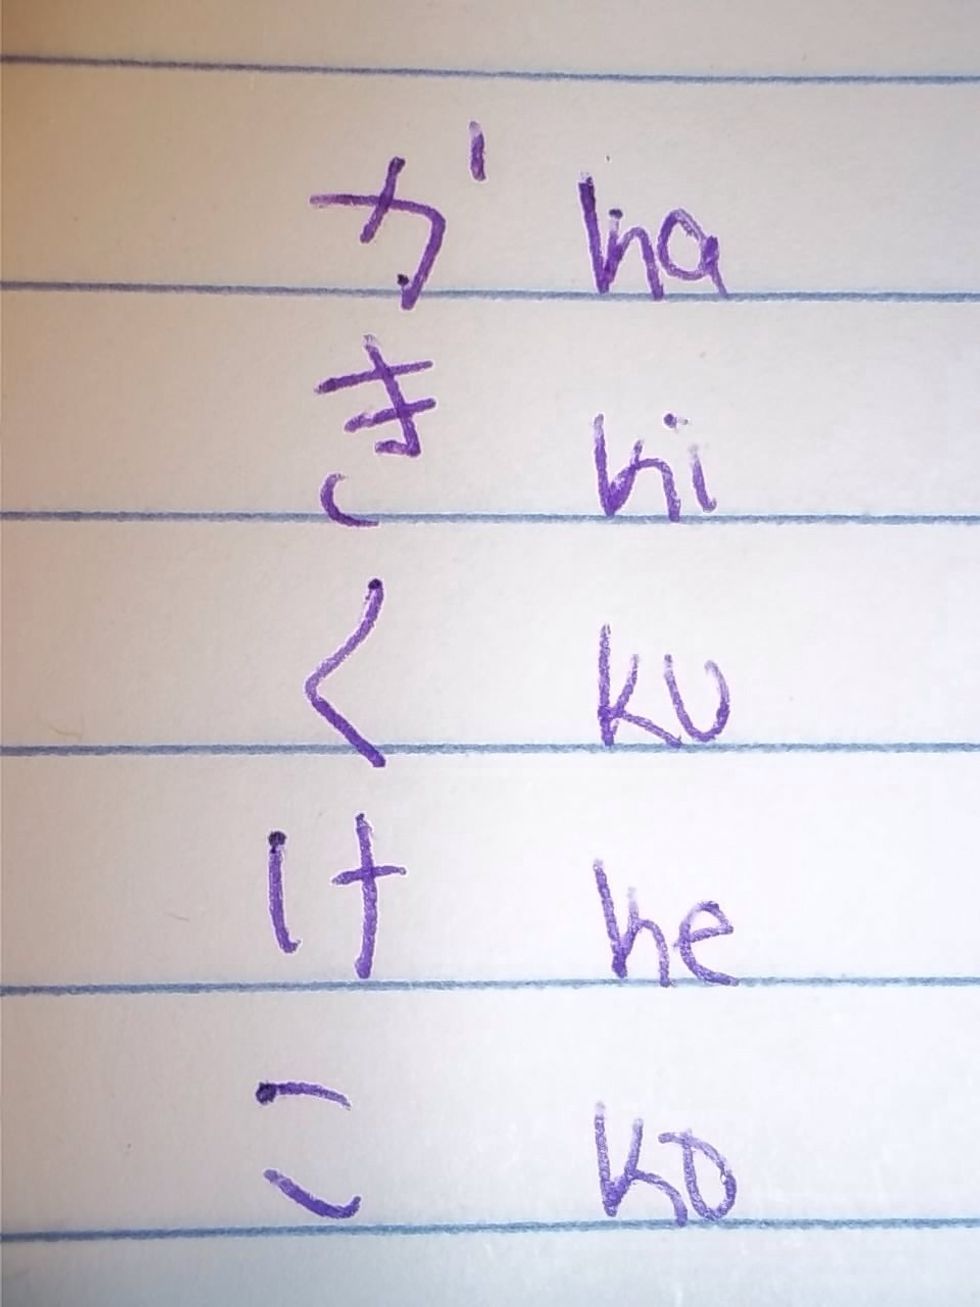 か ka
き ki
く ku
け ke
こ ko